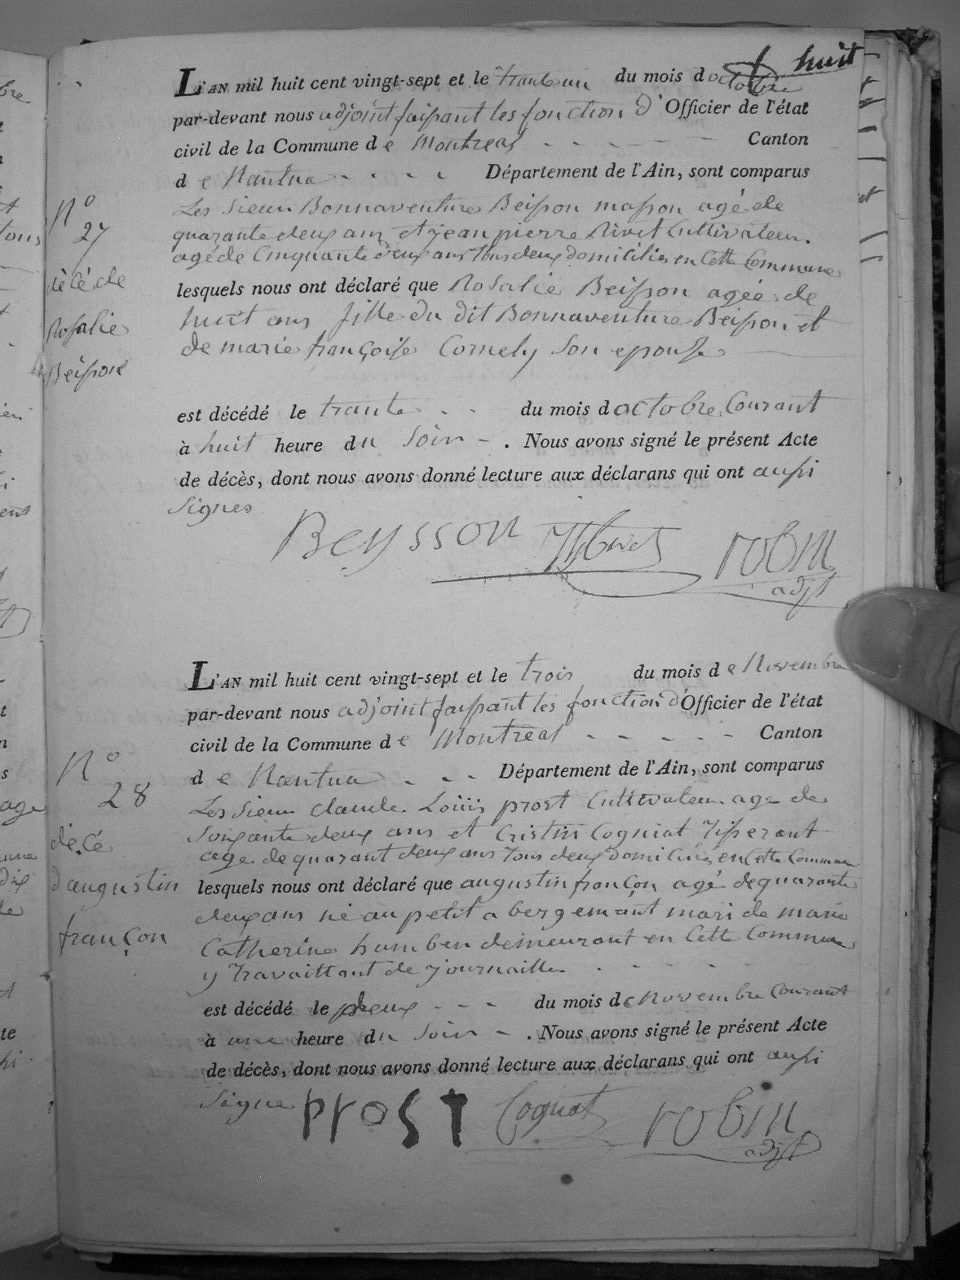 huit
L'AN mil huit cent vingt-sept et le trante un du mois doctobre
par-devant nous adjoint faisant les fonction d'Officier de l'état
civil de la Commune de Montreal Canton
de Nantua Département de l'Ain, sont comparus
Les Sieur Bonnaventure Beisson masson agé de
quarante deux ans et jean pierre Rivet Cultivateur
agé de Cinquante deux ans tous deux domiciliés en Cette Commune
lesquels nous ont déclaré que Rosalie Beisson agée de
huit ans fille du dit Bonnaventure Beisson et
de marie françoise Cornely Son epouse
est décédé le trante du mois doctobre Courant
à huit heure du Soir . Nous avons signé le présent Acte
de décès, dont nous avons donné lecture aux déclarans qui ont aussi
Signes
Beysson robin
adjt
N°
27
décé de
Rosalie
Beisson
L'AN mil huit cent vingt-sept et le trois du mois de Novembre
par-devant nous adjoint faisant les fonction d'Officier de l'état
civil de la Commune de Montreal Canton
de Nantua Département de l'Ain, sont comparus
Les Sieur claude Loüis prost Cultivateur age de
Soixante deux ans et Cristin Cogniat Tisserant
age de quarant deux ans tous deux domiciliés en Cette Commune
lesquels nous ont déclaré que augustin françon agé de quarante
deux ans né au petit abergemant mari de marie
Catherine humber demeurant en Cette Commune
y travaittant de journaille
est décédé le deux du mois de Novembre Courant
à une heure du Soir . Nous avons signé le présent Acte
de décès, dont nous avons donné lecture aux déclarans qui ont aussi
Signe
prost Cogniat robin
adjt
N°
28
décé
d'augustin
françon